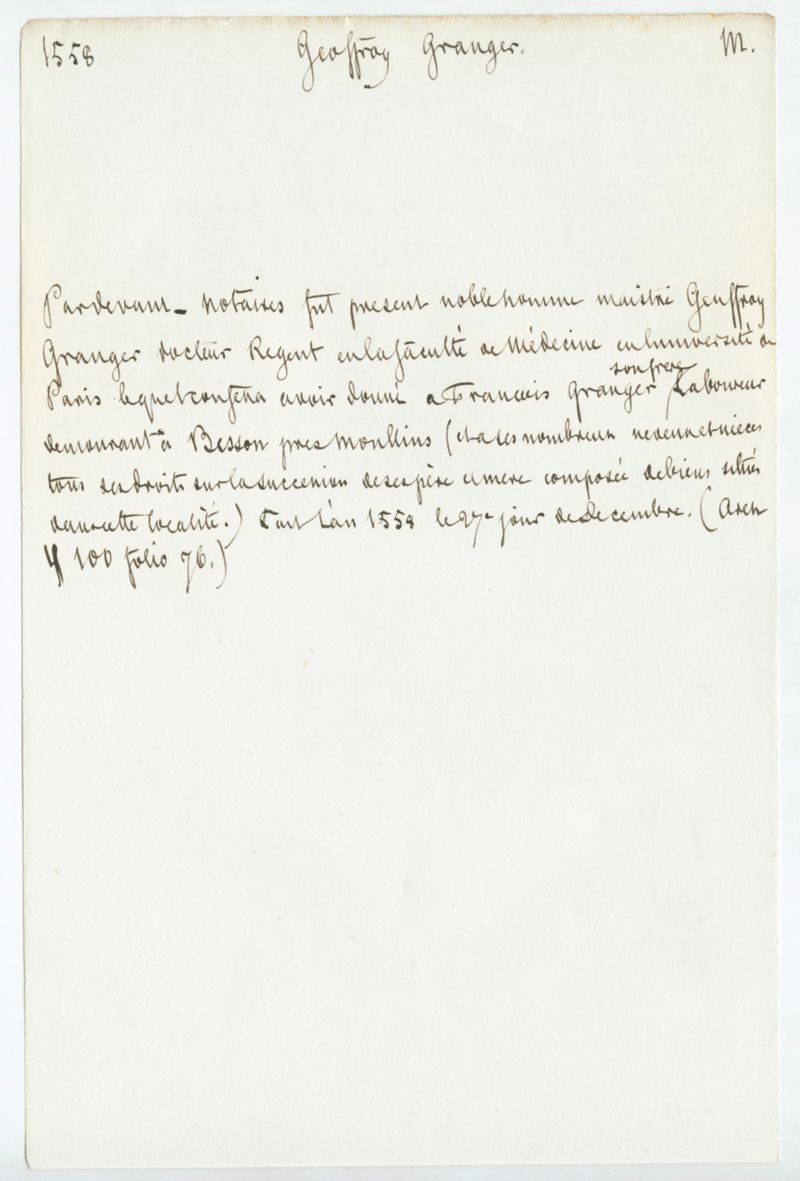 1558 Geoffroy Granger. M.
Pardevant - Notaires fut present noble homme maistre Geuffroy
Granger docteur Regent en la faculté de Médecine en lunniversité de
Paris lequel confessa avoir donné a Francois Granger son frere Laboureur
demourant à Besson pres Moullins (et a ses nombreux neveux et nieces
tous ses droits sur la succession de ses père et mere composée de biens situés
dans cette localité.) Fait l'an 1558 le 27e jour de Decembre. (Arch
Y 100 folio 76.)